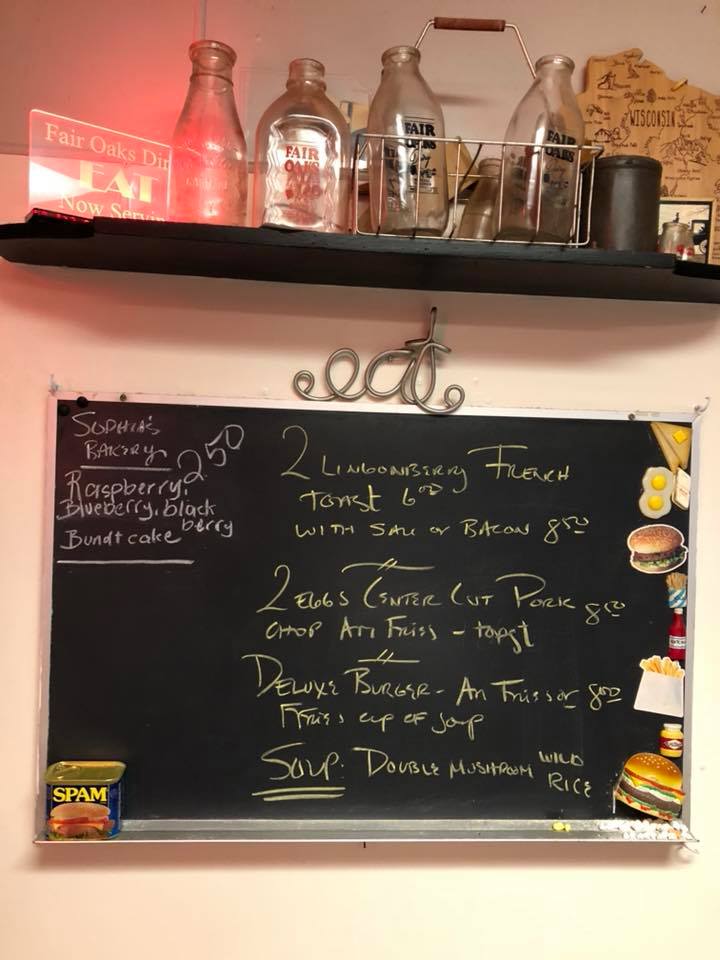 Fair Oaks Din
EAT
Now Servin
FAIR
OAKS
FAIR
OAKS
FAIR
OAKS
WISCONSIN
eat
SOPHIA'S
BAKERY
2 50
Raspberry,
Blueberry, black
berry
Bundt cake
2 LINGONBERRY FRENCH
TOAST 6 00
WITH SAU or BACON 8 50
2 EGGS CENTER CUT PORK 8 50
CHOP AM FRIES - TOAST
DELUXE BURGER - AM FRIES or 8 00
FRIES cup of soup
SOUP: DOUBLE MUSHROOM WILD
RICE
SPAM